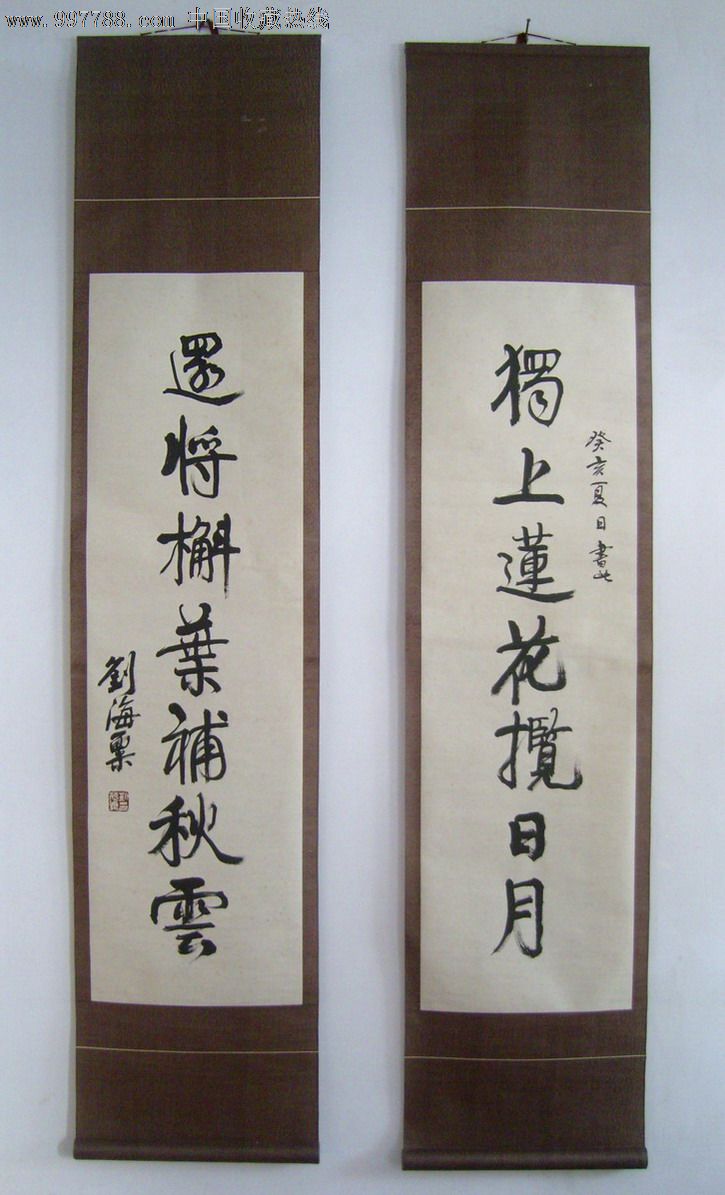 www.997788.com 中国收藏热线
癸亥夏日書此
獨上蓮花攬日月
還將槲葉補秋雲
劉海粟